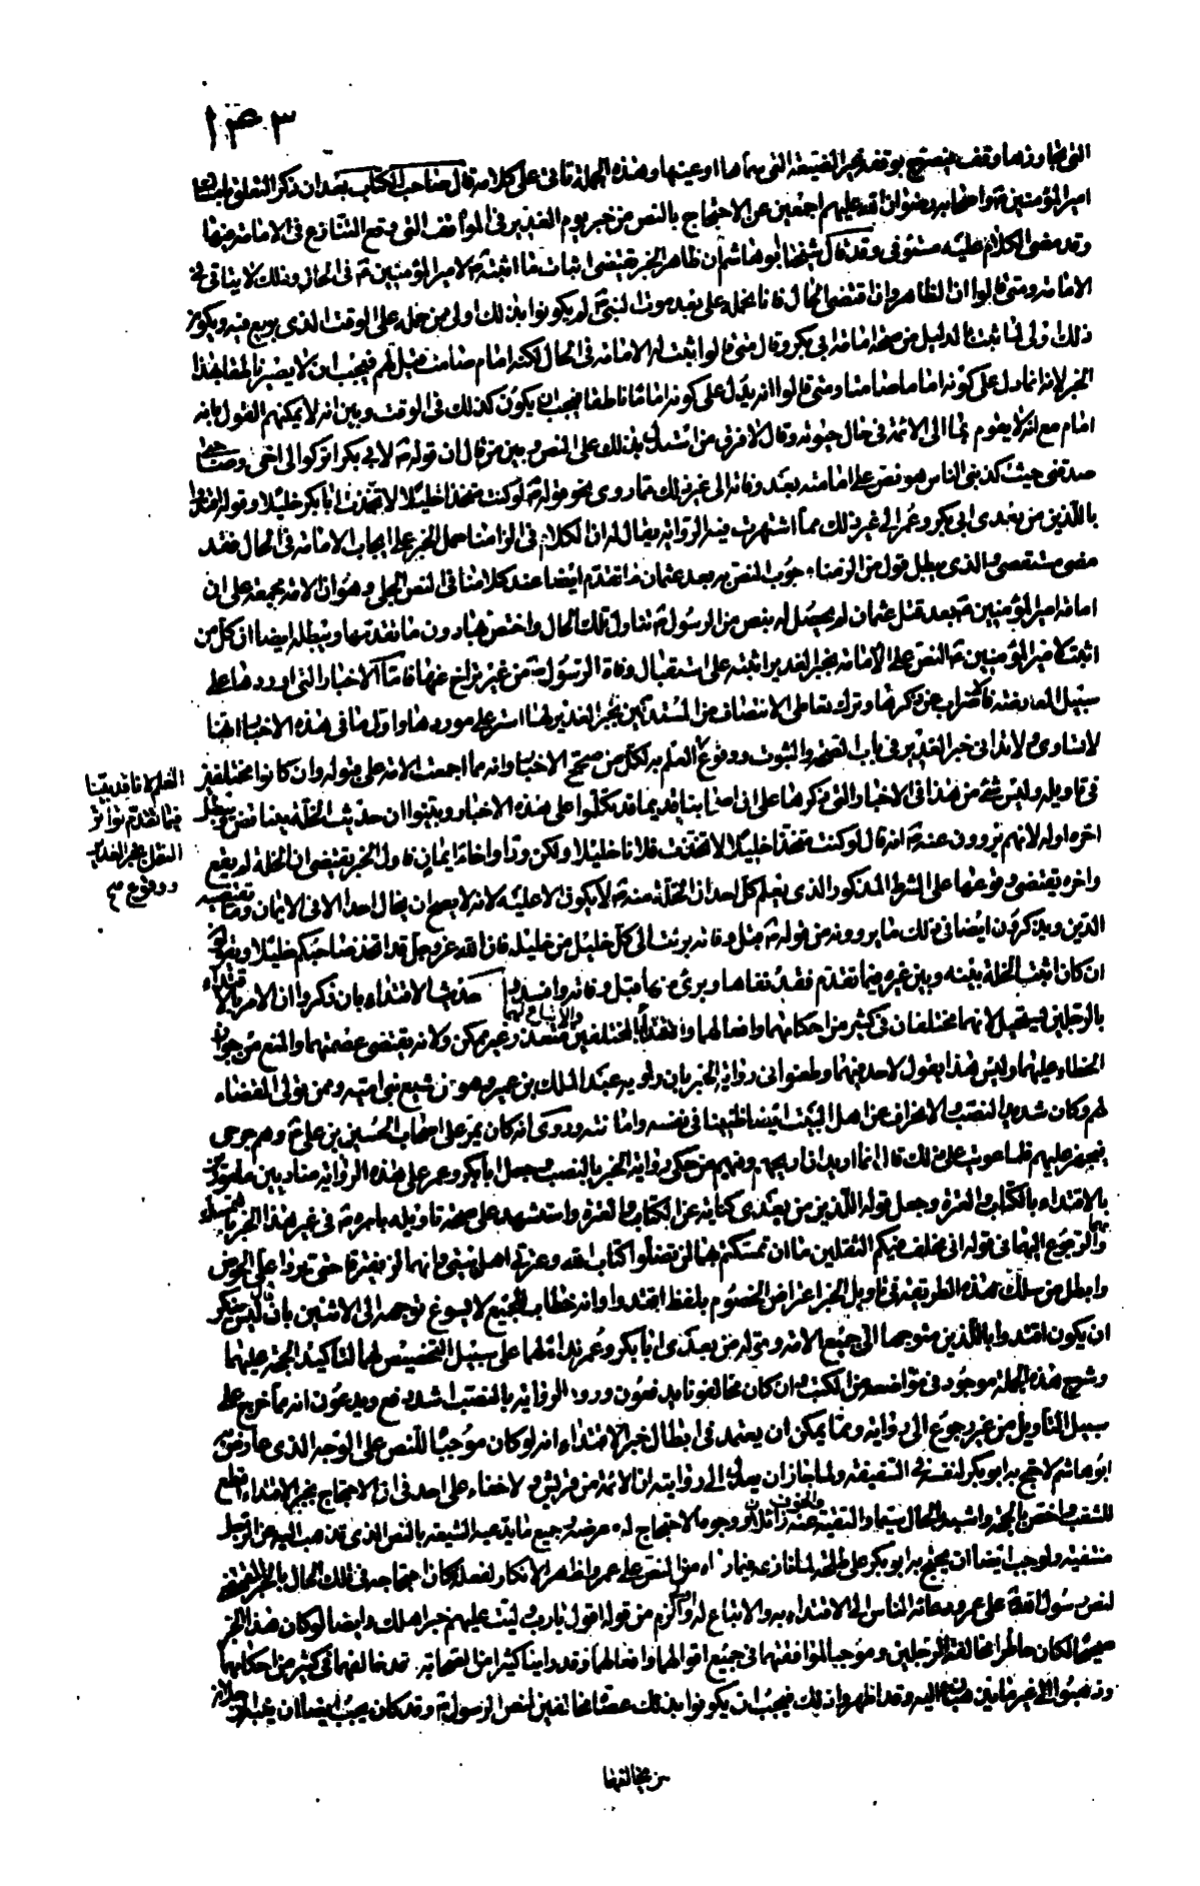 ١٤٣
التى يجاوزها وقف فيصرح بوقفه بخبر الضيعة التى سماها او عينها وهذه الجملة تاتى على كلامه قال صاحب الكتاب بعد ان ذكر التعلق
امير المؤمنين ع واصحابه رضوان الله عليهم اجمعين عن الاحتجاج بالنص من خبر يوم الغدير فى المواقف التى وقع التنازع فى الامامة فيها
وقد مضى الكلام عليه مستوفى وقد قال شيخنا ابو هاشم ان ظاهر الخبر يقتضى اثبات ما اثبته لامير المؤمنين ع فى الحال وذلك لا يتاتى فى
الامامة ومتى قالوا ان الظاهر وان اقتضى الحال فانا نحمله على بعد موت النبى ع لم يكونوا بذلك اولى ممن حمله على الوقت الذى بويع فيه ويكون
ذلك اولى لما ثبت بالدليل من صحة امامة ابى بكر وقال متى قالوا ثبت له الامامة فى الحال لكنه امام صامت قيل لهم فيجب ان لا يصير ناطقا بهذا
الخبر لانه انما دل على كونه اماما صامتا ومتى قالوا انه يدل على كونه اماما ناطقا فيجب ان يكون كذلك فى الوقت وبين انه لا يمكنهم القول بانه
امام مع انه لا يقوم بما الى الائمة فى حال حيوته وقال لا فرق من استدل بذلك على النص وبين من قال ان قوله ع لابى بكر اتركوا لى اخى وصاحبى
صدقنى حيث كذبنى الناس هو نص على امامته بعد وفاته الى غير ذلك مما روى نحو قوله ع لو كنت متخذا خليلا لاتخذت ابا بكر خليلا وقوله اقتدوا
باللذين من بعدى ابى بكر وعمر الى غير ذلك مما اشتهرت فيه الرواية يقال له ان الكلام فى الزامنا حمل الخبر على ايجاب الامامة فى الحال فقد
مضى مستقصى والذى يبطل قول من الزمنا وجوب النص به بعد عثمان ما تقدم ايضا عند كلامنا فى النص الجلى وهو ان الامة مجمعة على ان
امامة امير المؤمنين ع بعد قتل عثمان لم يحصل له بنص من الرسول ع تناول تلك الحال واختص بها دون ما تقدمها ويبطله ايضا ان كل من
اثبت لامير المؤمنين ع النص على الامامة بخبر الغدير اثبته على استقبال وفاة الرسول ع من غير تراخ عنها فاما الاخبار التى اوردها على
سبيل المعارضة فالاضراب عن ذكرها وترك تعاطى الانتصاف من المستدلين بخبر الغدير لها استر على موردها واول ما فى هذه الاخبار انها
لا تساوى ولا تدانى خبر الغدير فى باب الصحة والثبوت ووقوع العلم به لكل من صحح الاخبار وانه مما اجمعت الامة على قبوله وان كانوا مختلفين
فى تاويله وليس شئ من هذا فى الاخبار التى ذكرها على ان اصحابنا قديما قد تكلموا على هذه الاخبار وبينوا ان حديث الخلة يناقض ويبطل
اخره اوله لانهم يروون عنه ع انه قال لو كنت متخذا خليلا لاتخذت فلانا خليلا ولكن ودا واخاء ايمان فاول الخبر يقتضى ان الخلة لم يقع
واخره يقتضى وقوعها على الشرط المذكور الذى يعلم كل احد ان الخلة منه ع لا يكون الا عليه لانه لا يصح ان يخال احدا الا فى الايمان وما يقتضيه
الدين ويذكرون ايضا فى ذلك ما يروونه من قوله ع قبل وفاته برئت الى كل خليل من خليل فان الله عز وجل قد اتخذ صاحبكم خليلا ويقولون
ان كان اثبت الخلة بينه وبين غيره فيما تقدم فقد نفاها وبرئ منها قبل وفاته وافسدوا حديث الاقتداء بان ذكروا ان الامر بالاقتداء
بالرجلين يستحيل لانهما مختلفان فى كثير من احكامهما وافعالهما والاقتداء بالمختلفين والاتباع لهما متعذر غير ممكن ولانه يقتضى عصمتهما والمنع من جواز
الخطاء عليهما وليس هذا بقول لاحد فيهما وطعنوا فى رواية الخبر بان راويه عبد الملك بن عمير وهو من شيع بنى امية وممن تولى القضاء
لهم وكان شديد النصب والانحراف عن اهل البيت ايضا ظنينا فى نفسه وامانته وروى انه كان يمر على اصحاب الحسين بن على ع وهم جرحى
فيجهز عليهم فلما عوتب على ذلك قال انما اريد ان اريحهم وفيهم من حكى رواية الخبر بالنصب وجعل ابا بكر وعمر على هذه الرواية مناديين مامورين
بالاقتداء بالكتاب والعترة وجعل قوله اللذين من بعدى كناية عن الكتاب والعترة واستشهد على صحة تاويله بامره ع فى غير هذا الخبر بالتمسك
بهما والرجوع اليهما فى قوله انى مخلف فيكم الثقلين ما ان تمسكتم بهما لن تضلوا كتاب الله وعترتى اهل بيتى وانهما لن يفترقا حتى يردا على الحوض
وابطل من سلك هذه الطريقة فى تاويل الخبر اعتراض الخصوم بلفظ اقتدوا وانه خطاب للجميع لا يسوغ توجهه الى الاثنين بان قال ليس ينكر
ان يكون اقتدوا باللذين متوجها الى جميع الامة وقوله من بعدى ابا بكر وعمر نداء لهما على سبيل التخصيص لهما لتاكيد الحجة عليهما
وشرح هذه الجملة موجود فى مواضعه من الكتب وان كان مخالفونا يدفعون ورود الرواية بالنصب اشد دفع ويدعون انه مما خرج على
سبيل التاويل من غير رجوع الى رواية ومما يمكن ان يعتمد فى ابطال خبر الاقتداء انه لو كان موجبا للنص على الوجه الذى عارض به
ابو هاشم لاحتج به ابو بكر لنفسه فى السقيفة ولما جاز ان يعدل الى روايته ان الائمة من قريش ولا خفاء على احد فى ان الاحتجاج بخبر الاقتداء اقطع
للشغب واخص بالحجة واشبه بالحال سيما والتقية والخوف عنه زائلان ووجوه الاحتجاج له معرضة وجميع ما يدعيه الشيعة بالنص الذى تذهب اليه عن الرجل
منتفية ولوجب ايضا ان يحتج به ابو بكر على طلحة لما نازعه فيما راه من النص على عمر واظهر الانكار لفعله فكان احتجاجه فى تلك الحال بالخبر المقتضى
لنص رسول الله ع على عمر ودعائه الناس الى الاقتداء به والاتباع له اولى والزم من قوله اقول يا رب وليت عليهم خير اهلك وايضا لو كان هذا الخبر
صحيحا لكان حاظرا مخالفة الرجلين وموجبا لموافقتهما فى جميع اقوالهما وافعالهما وقد راينا كثيرا من الصحابة قد خالفهما فى كثير من احكامهما
وذهبوا الى غير ما يذهبان اليه وقد اظهروا ذلك فيجب ان يكونوا بذلك عصاة مخالفين لنص الرسول ع وقد كان يجب ايضا ان ينبه الرجلان
من يخالفهما
العلم لانا قد بينا
فيما تقدم تواتر
النقل بخبر الغدير
ووقوع صح